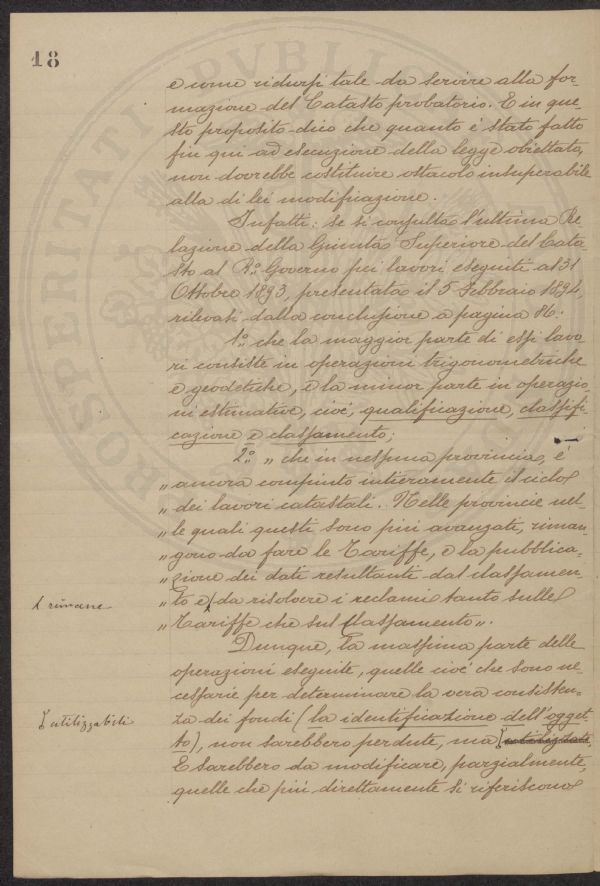 18
e come ridursi tale da servire alla for-
mazione del Catasto probatorio. E in que-
sto proposito dico che quanto è stato fatto
fin qui ad esecuzione della legge obiettata,
non dovrebbe costituire ostacolo insuperabile
alla di lei modificazione.
Infatti: se si consulta l'ultima Re-
lazione della Giunta Superiore del Cata-
sto al R.o Governo pei lavori eseguiti al 31
Ottobre 1893, presentata il 5 Febbraio 1894,
rilevasi dalla conclusione a pagina 86:
1.o che la maggior parte di essi lavo-
ri consiste in operazioni trigonometriche
e geodetiche, e la minor parte in operazio-
ni estimative, cioè, qualificazione, classifi-
cazione e classamento;
2.o „ che in nessuna provincia, è
„ ancora compiuto intieramente il ciclo
„ dei lavori catastali. Nelle provincie nel-
„ le quali questi sono più avanzati, riman-
„ gono da fare le Tariffe, e la pubblica-
„ zione dei dati resultanti dal classamen-
rimane
„ to e da risolvere i reclami tanto sulle
„ Tariffe che sul Classamento „.
Dunque, la massima parte delle
operazioni eseguite, quelle cioè che sono ne-
cessarie per determinare la vera consisten-
utilizzabili
za dei fondi (la identificazione dell'ogget-
to), non sarebbero perdute, ma
E sarebbero da modificare, parzialmente,
quelle che più direttamente si riferiscono
PROSPERITATI PVBLICAE